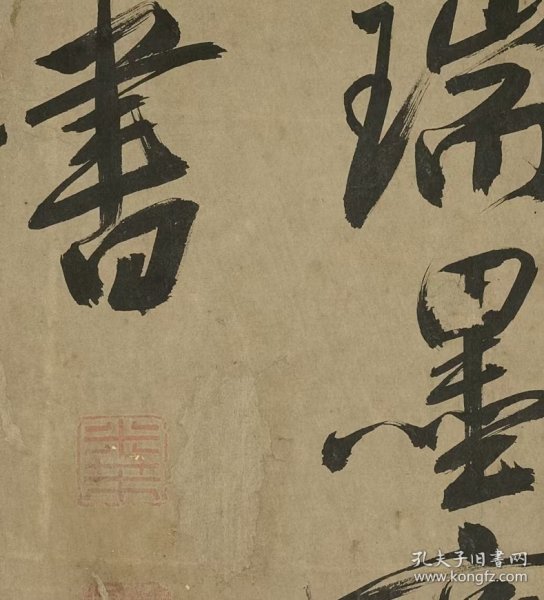 瑞墨
書
米芾
孔夫子旧书网
www.kongfz.com